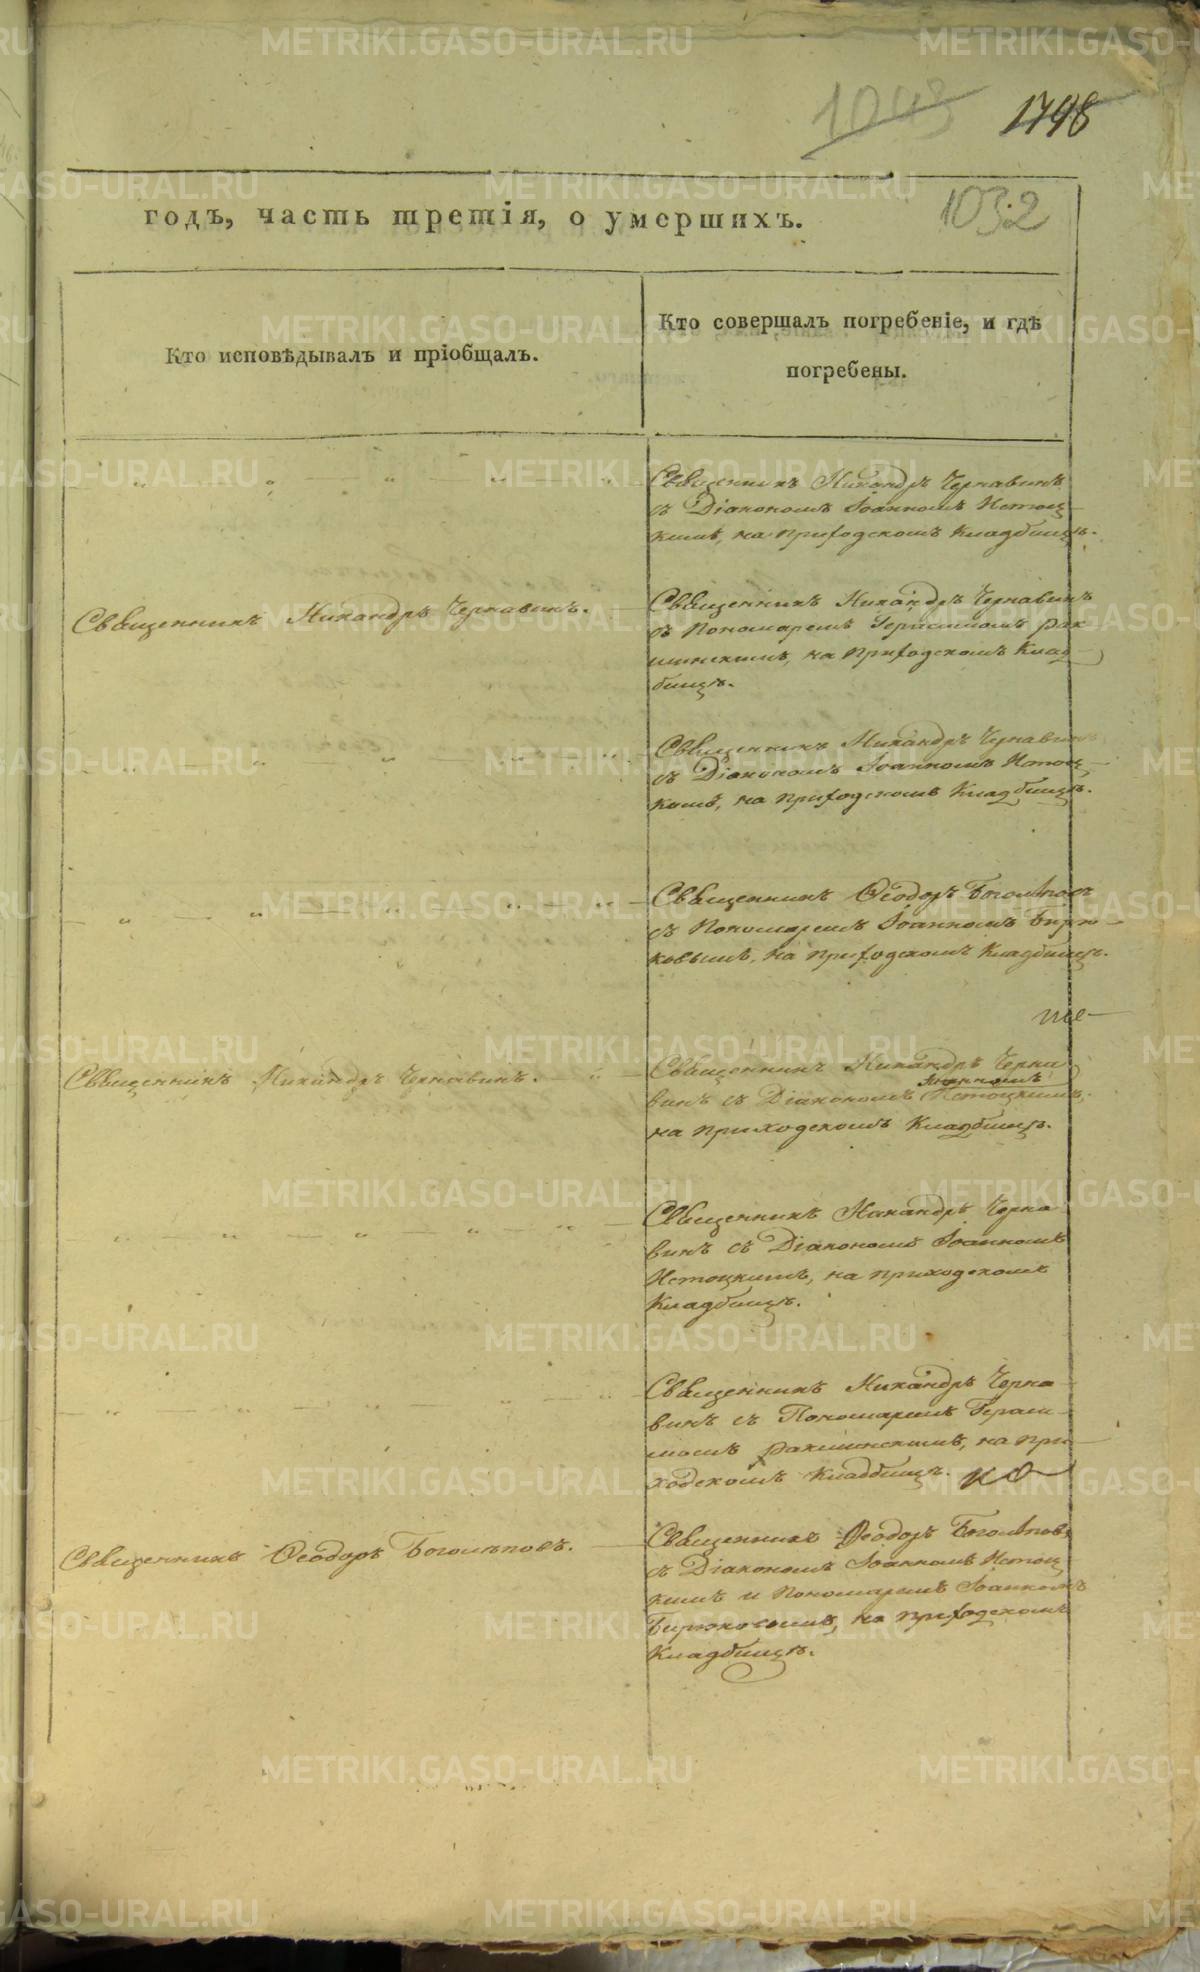 1043
1798
1032
годъ, часть третія, о умершихъ.
Кто исповѣдывалъ и пріобщалъ.
Кто совершалъ погребеніе, и гдѣ
погребены.
Священникъ Никандръ Чернавинъ
съ Діакономъ Іоанномъ Истоц-
кимъ, на приходскомъ кладбищѣ.
Священникъ Никандръ Чернавинъ.
Священникъ Никандръ Чернавинъ
съ Пономаремъ Герасимомъ Рак-
шинскимъ, на приходскомъ Клад-
бищѣ.
Священникъ Никандръ Чернавинъ
съ Діакономъ Іоанномъ Истоц-
кимъ, на приходскомъ Кладбищѣ.
Священникъ Ѳеодоръ Боголѣповъ
съ Пономаремъ Іоанномъ Бирю-
ковымъ, на приходскомъ Кладбищѣ.
Священникъ Никандръ Чернавинъ.
Священникъ Никандръ Черна-
винъ съ Діакономъ Іоанномъ Истоцкимъ,
на приходскомъ Кладбищѣ.
Священникъ Никандръ Черна-
винъ съ Діакономъ Іоанномъ
Истоцкимъ, на приходскомъ
Кладбищѣ.
Священникъ Никандръ Черна-
винъ съ Пономаремъ Гераси-
момъ Ракшинскимъ, на при-
ходскомъ Кладбищѣ.
Священникъ Ѳеодоръ Боголѣповъ.
Священникъ Ѳеодоръ Боголѣповъ
съ Діакономъ Іоанномъ Истоц-
кимъ и Пономаремъ Іоанномъ
Бирюковымъ, на приходскомъ
Кладбищѣ.
METRIKI.GASO-URAL.RU